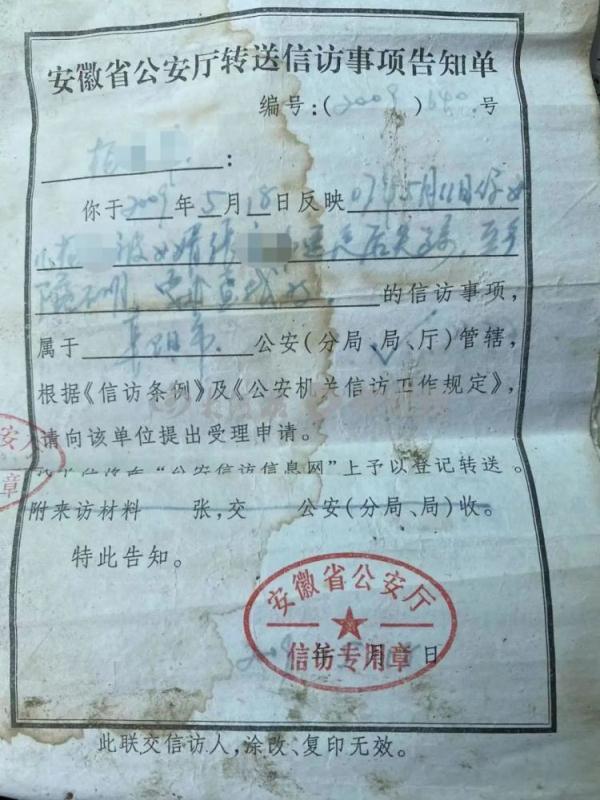 安徽省公安厅转送信访事项告知单
编号:(2009)640号
:
你于2009年5月18日反映07年5月11日你女
小 被女婿张 后失踪,至今
下落不明,要求查找的的信访事项,
属于 阜阳市 公安(分局、局、厅)管辖,
根据《信访条例》及《公安机关信访工作规定》,
请向该单位提出受理申请。
“公安信访信息网”上予以登记转送。
附来访材料 张,交 公安(分局、局)收。
特此告知。
安徽省公安厅
信访专用章
年 月 日
此联交信访人,涂改、复印无效。